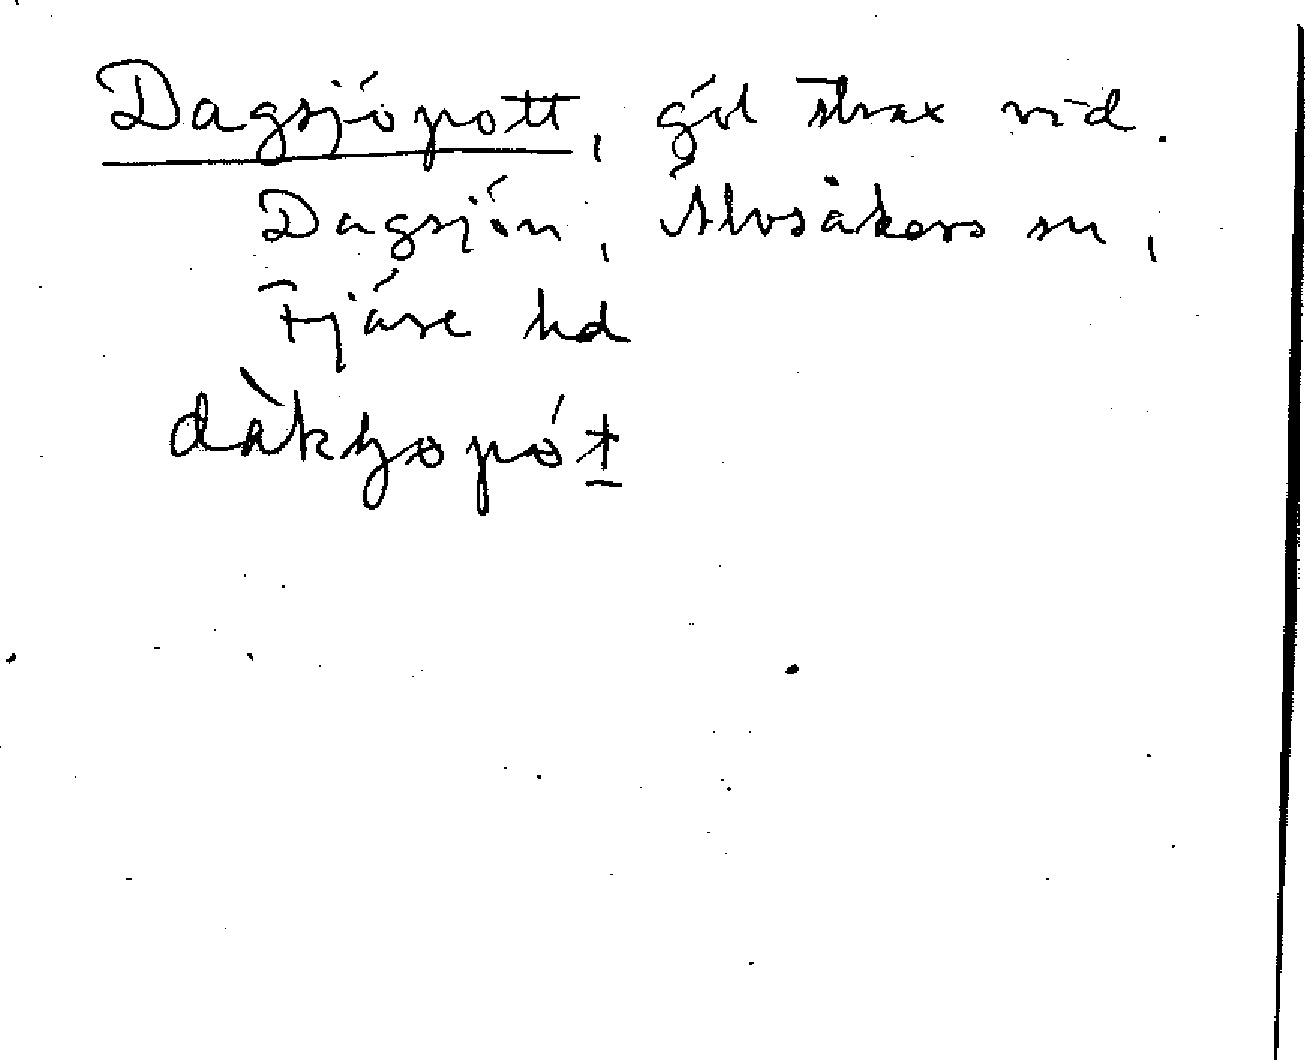 Dagsjöpott, göl strax vid.
Dagsjön, Älvsåkers sn,
Fjäre hd